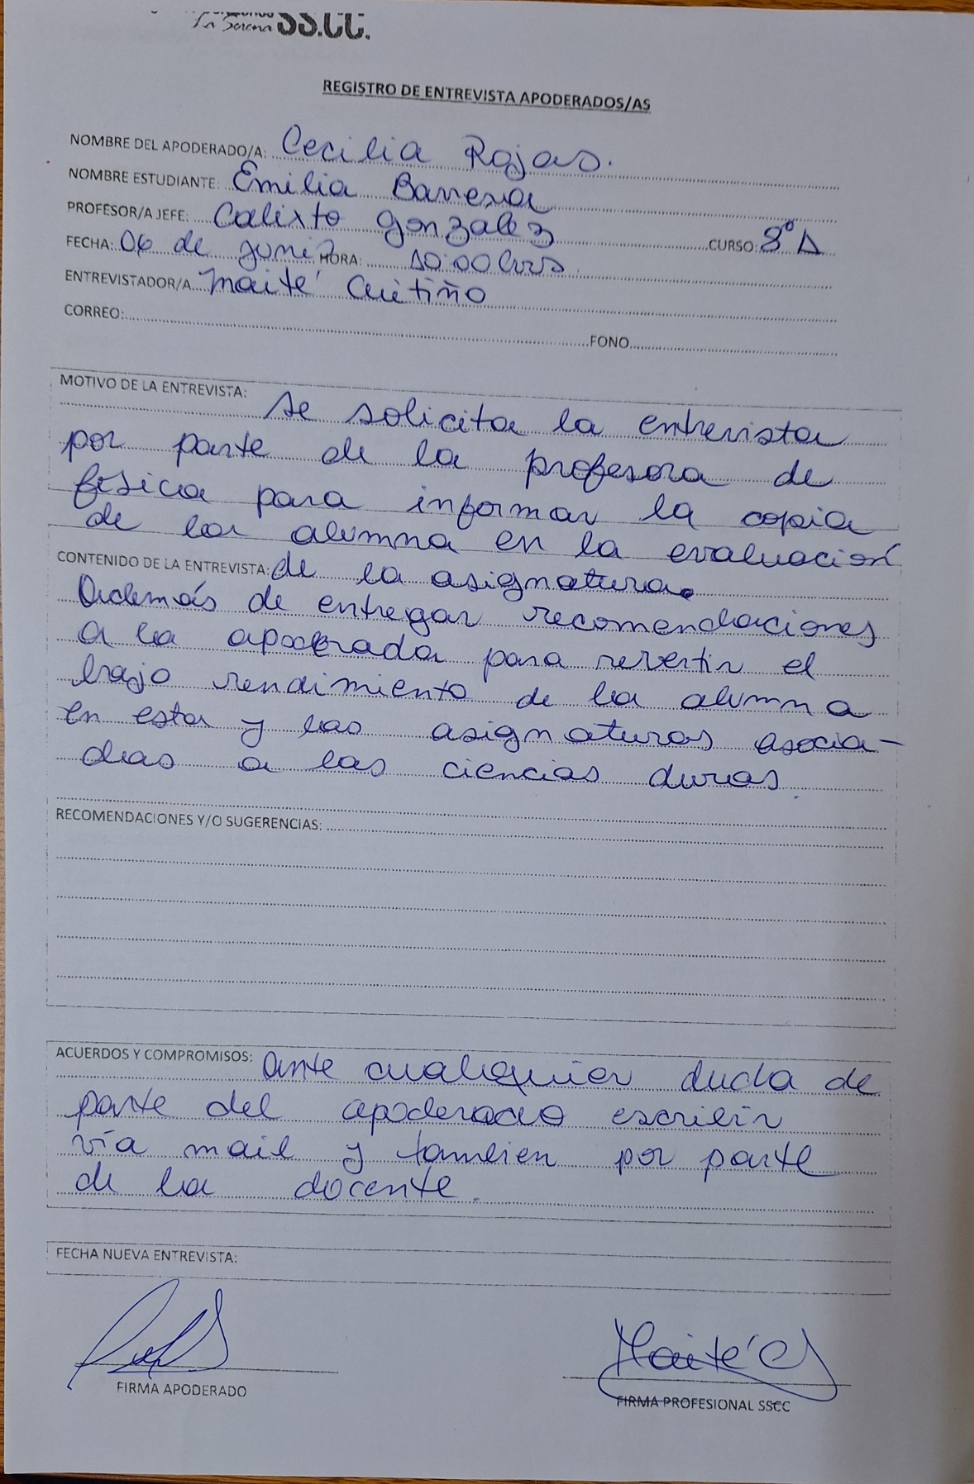 La Serena SS.CC.
REGISTRO DE ENTREVISTA APODERADOS/AS
NOMBRE DEL APODERADO/A: Cecilia Rojas.
NOMBRE ESTUDIANTE: Emilia Barrera
PROFESOR/A JEFE: Calixto Gonzalez CURSO: 8°A
FECHA: 06 de junio HORA: 10:00 hrs
ENTREVISTADOR/A: Maité Cuitiño
CORREO: FONO
MOTIVO DE LA ENTREVISTA: Se solicita la entrevista
por parte de la profesora de
física para informar la copia
de la alumna en la evaluación
CONTENIDO DE LA ENTREVISTA: de la asignatura.
Además de entregar recomendaciones
a la apoderada para revertir el
bajo rendimiento de la alumna
en esta y las asignaturas asocia-
das a las ciencias duras.
RECOMENDACIONES Y/O SUGERENCIAS:
ACUERDOS Y COMPROMISOS: Ante cualquier duda de
parte del apoderado escribir
vía mail y tambien por parte
de la docente.
FECHA NUEVA ENTREVISTA:
Maité C
FIRMA APODERADO
FIRMA PROFESIONAL SSCC